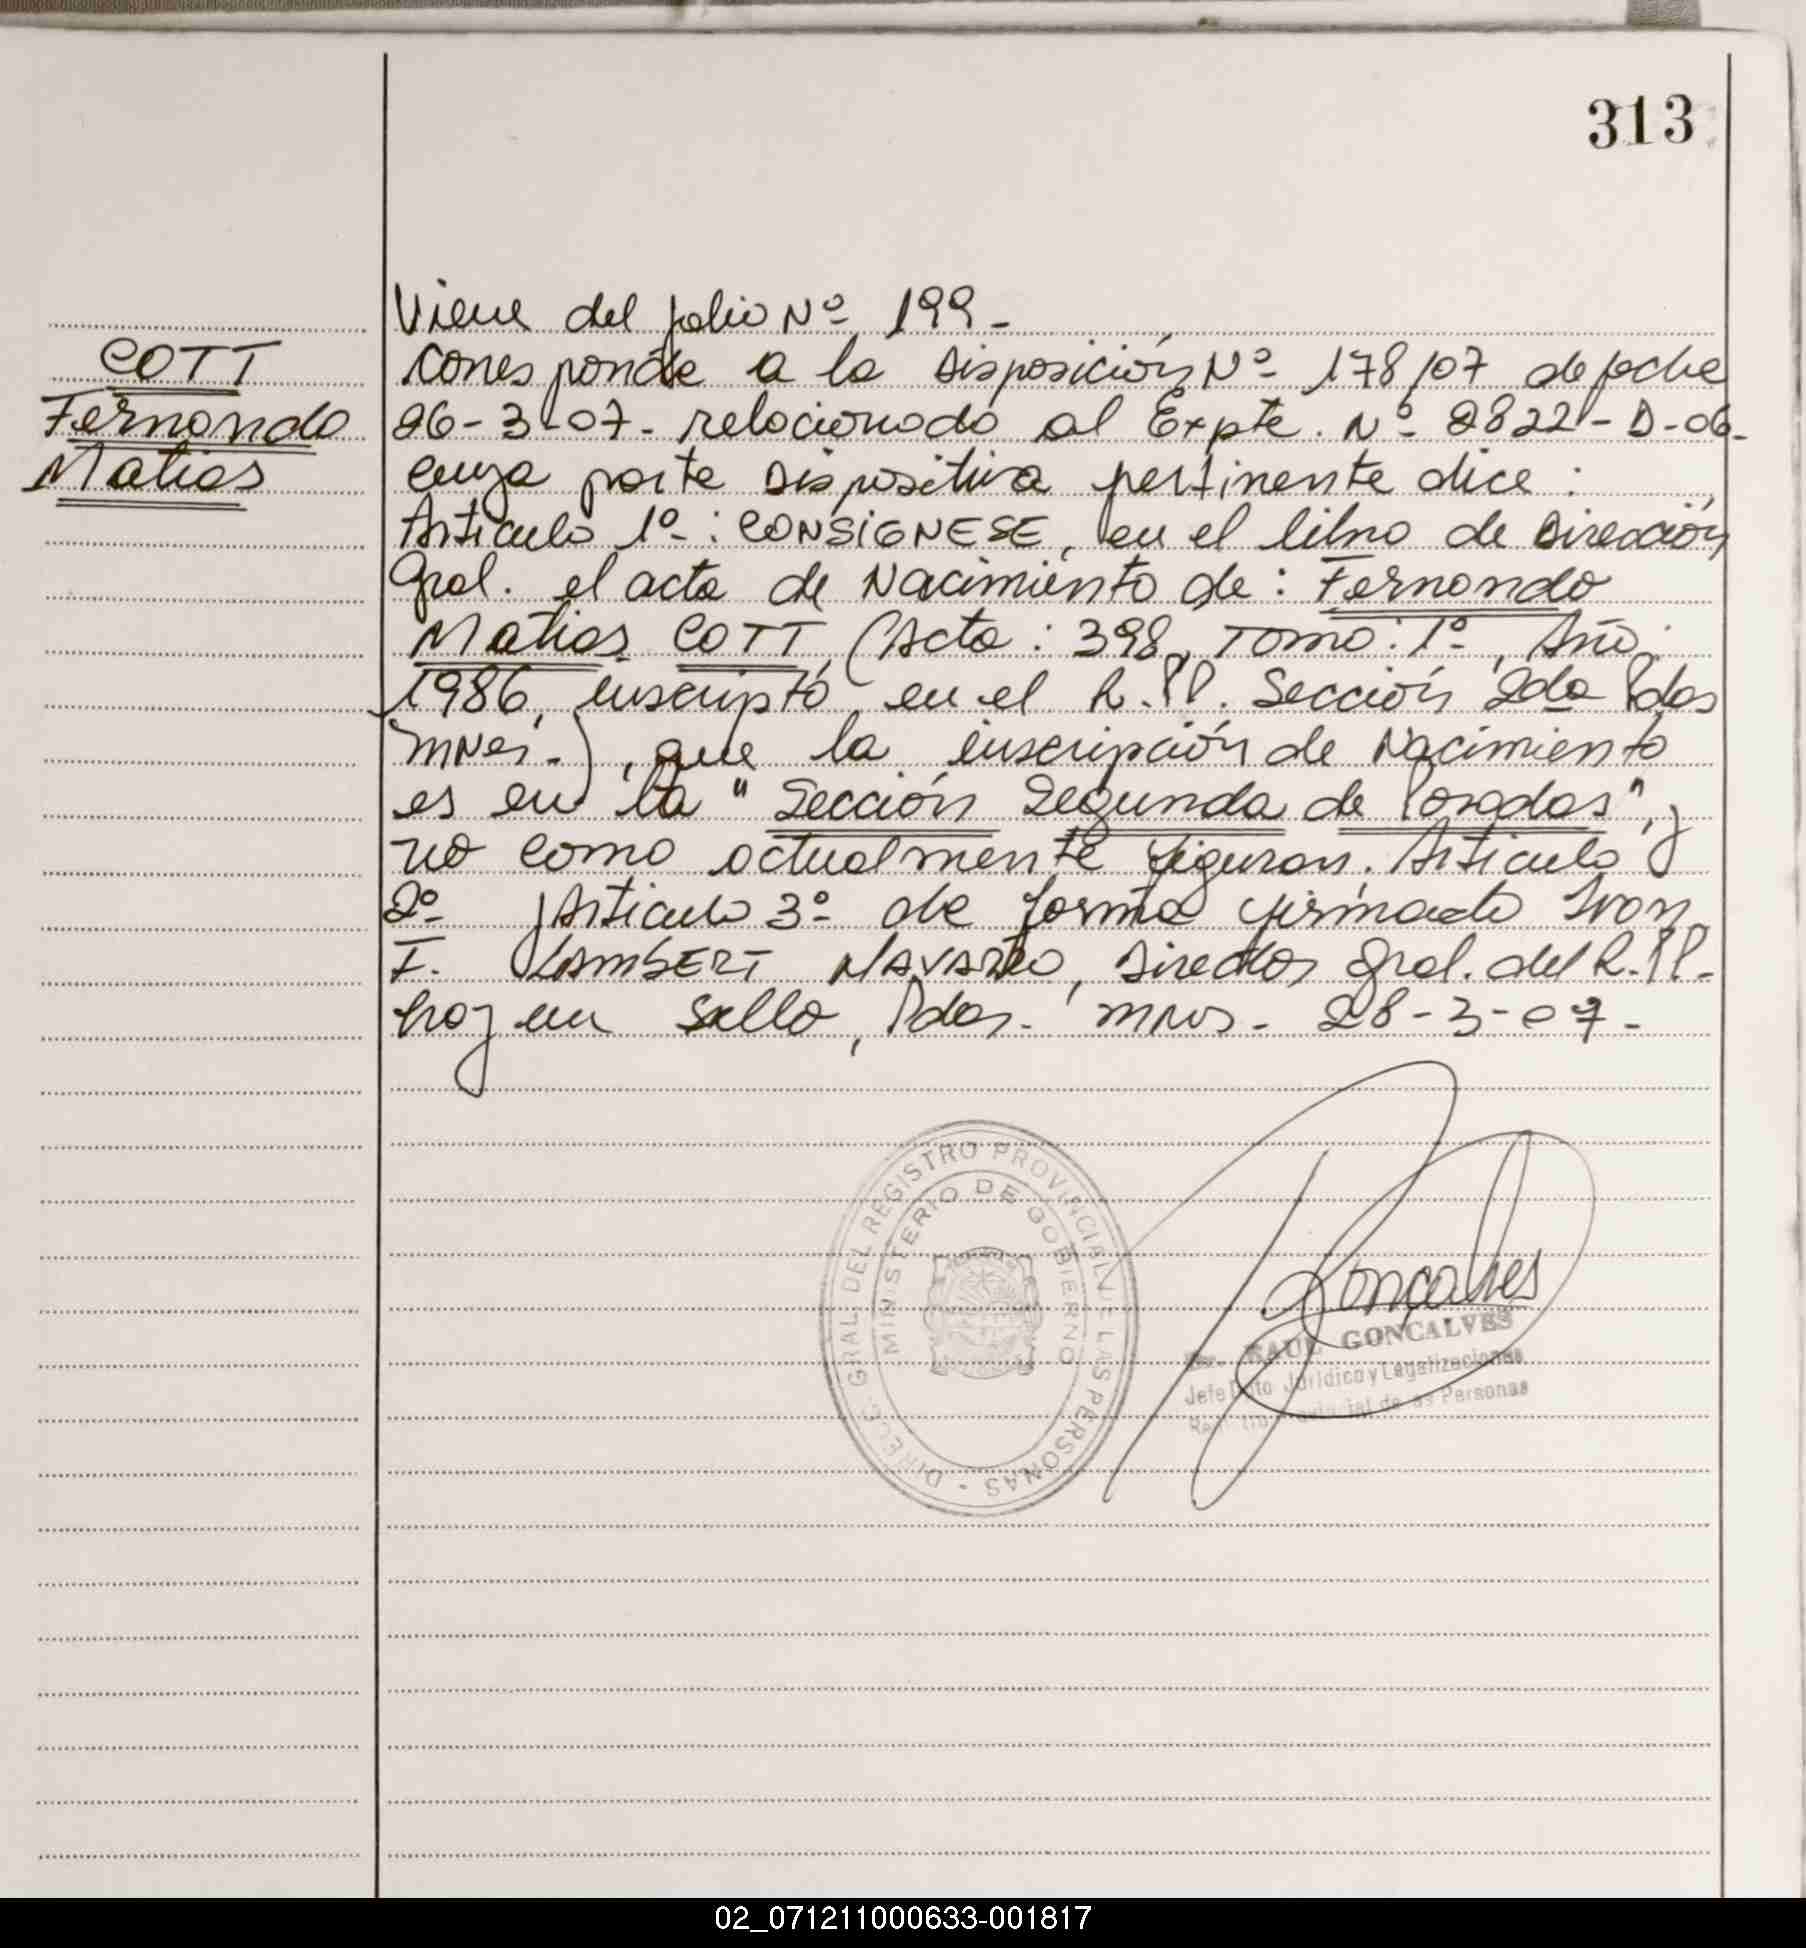 313
Viene del folio Nº 199-
COTT
Fernando
Matias
Corresponde a la Disposición Nº 178/07 de fecha
26-3-07- relacionado al Expte. Nº 2822-D-06-
cuya parte Dispositiva pertinente dice:
Articulo 1º: CONSIGNESE, en el libro de Dirección
Gral. el acta de Nacimiento de: Fernando
Matias COTT, (Acta: 398, Tomo: 1º, Año:
1986, inscripto en el R.PP. Sección 2da Pdas
Mnes.), que la inscripción de Nacimiento
es en la "Sección Segunda de Posadas", y
no como actualmente figuran. Articulo
2º y Articulo 3º de forma firmado Ivan
F. LAMBERT NAVARRO, Director Gral. del R.PP.
hay un sello, Pdas. Mnes. 28-3-07-
DIRECC. GRAL. DEL REGISTRO PROVINCIAL DE LAS PERSONAS -
MINISTERIO DE GOBIERNO
Goncalves
Dr. RAUL GONCALVES
Jefe Dpto Jurídico y Legalizaciones
Registro Provincial de las Personas
02_071211000633-001817